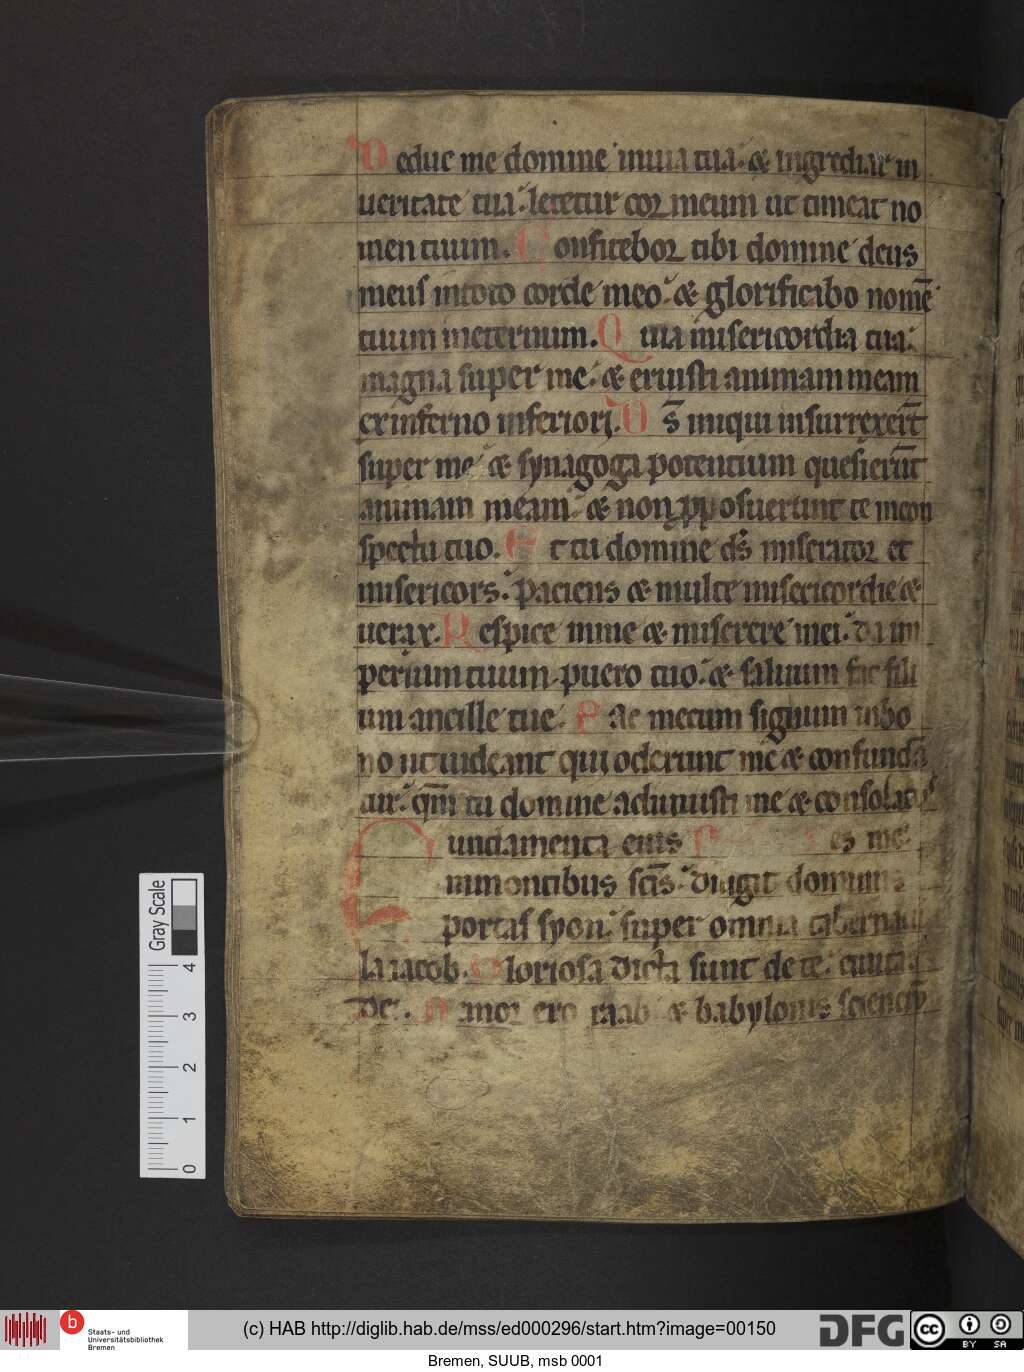 Deduc me domine inuia tua. & ingrediar in
ueritate tua. letetur cor meum ut timeat no
men tuum. Confitebor tibi domine deus
meus intoto corde meo. & glorificabo nomē
tuum ineternum. Quia misericordia tua.
magna super me. & eruisti animam meam
exinferno inferiori. Ds̄ iniqui insurrexer̄t
super me. & synagoga potentium quesierūt
animam meam. & non pposuerunt te incon
spectu tuo. Et tu domine ds̄ miserator et
misericors. Paciens & multe misericordie &
uerax. Respice inme & miserere mei. da im
perium tuum puero tuo. & saluum fac fili
um ancille tue. Fac mecum signum inbo
no ut uideant qui oderunt me & confund
tur. qm̄ tu domine adiuuisti me & consolatus
undamenta eius es me.
inmontibus sc̄is. diligit dominus
portas syon. super omnia tabernacu
la iacob. Gloriosa dicta sunt de te. ciuitas
dei. Memor ero raab & babylonis
Gray Scale
4
3
2
1
0
b
Staats- und
Universitätsbibliothek
Bremen
(c) HAB http://diglib.hab.de/mss/ed000296/start.htm?image=00150
DFG
cc
BY SA
Bremen, SUUB, msb 0001